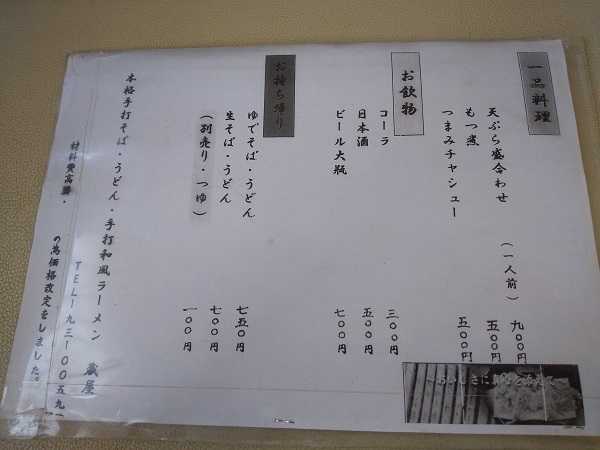 一品料理
天ぷら盛合わせ (一人前) 九〇〇円
もつ煮 五〇〇円
つまみチャシュー 五〇〇円
お飲物
コーラ 三〇〇円
日本酒 五〇〇円
ビール大瓶 七〇〇円
お持ち帰り
ゆでそば・うどん 七五〇円
生そば・うどん 七〇〇円
(別売り・つゆ) 一〇〇円
本格手打そば・うどん・手打和風ラーメン 蔵屋
TEL 九三一〇〇五九
材料費高騰・の為価格改定をしました。
おいしさに